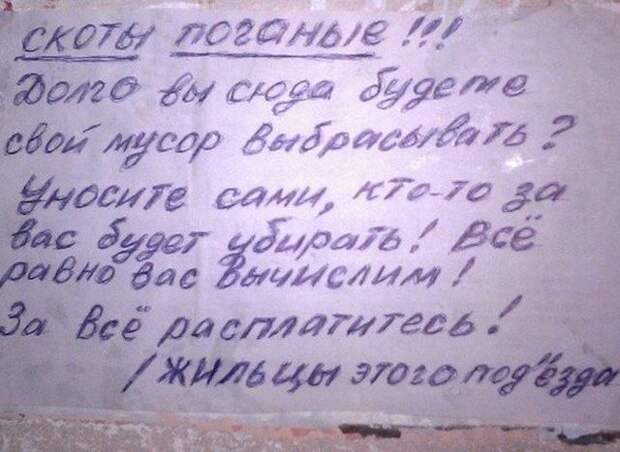 скоты поганые!!!
Долго вы сюда будете
свой мусор выбрасывать?
Уносите сами, кто-то за
вас будет убирать! Всё
равно вас вычислим!
За всё расплатитесь!
/жильцы этого под"езда